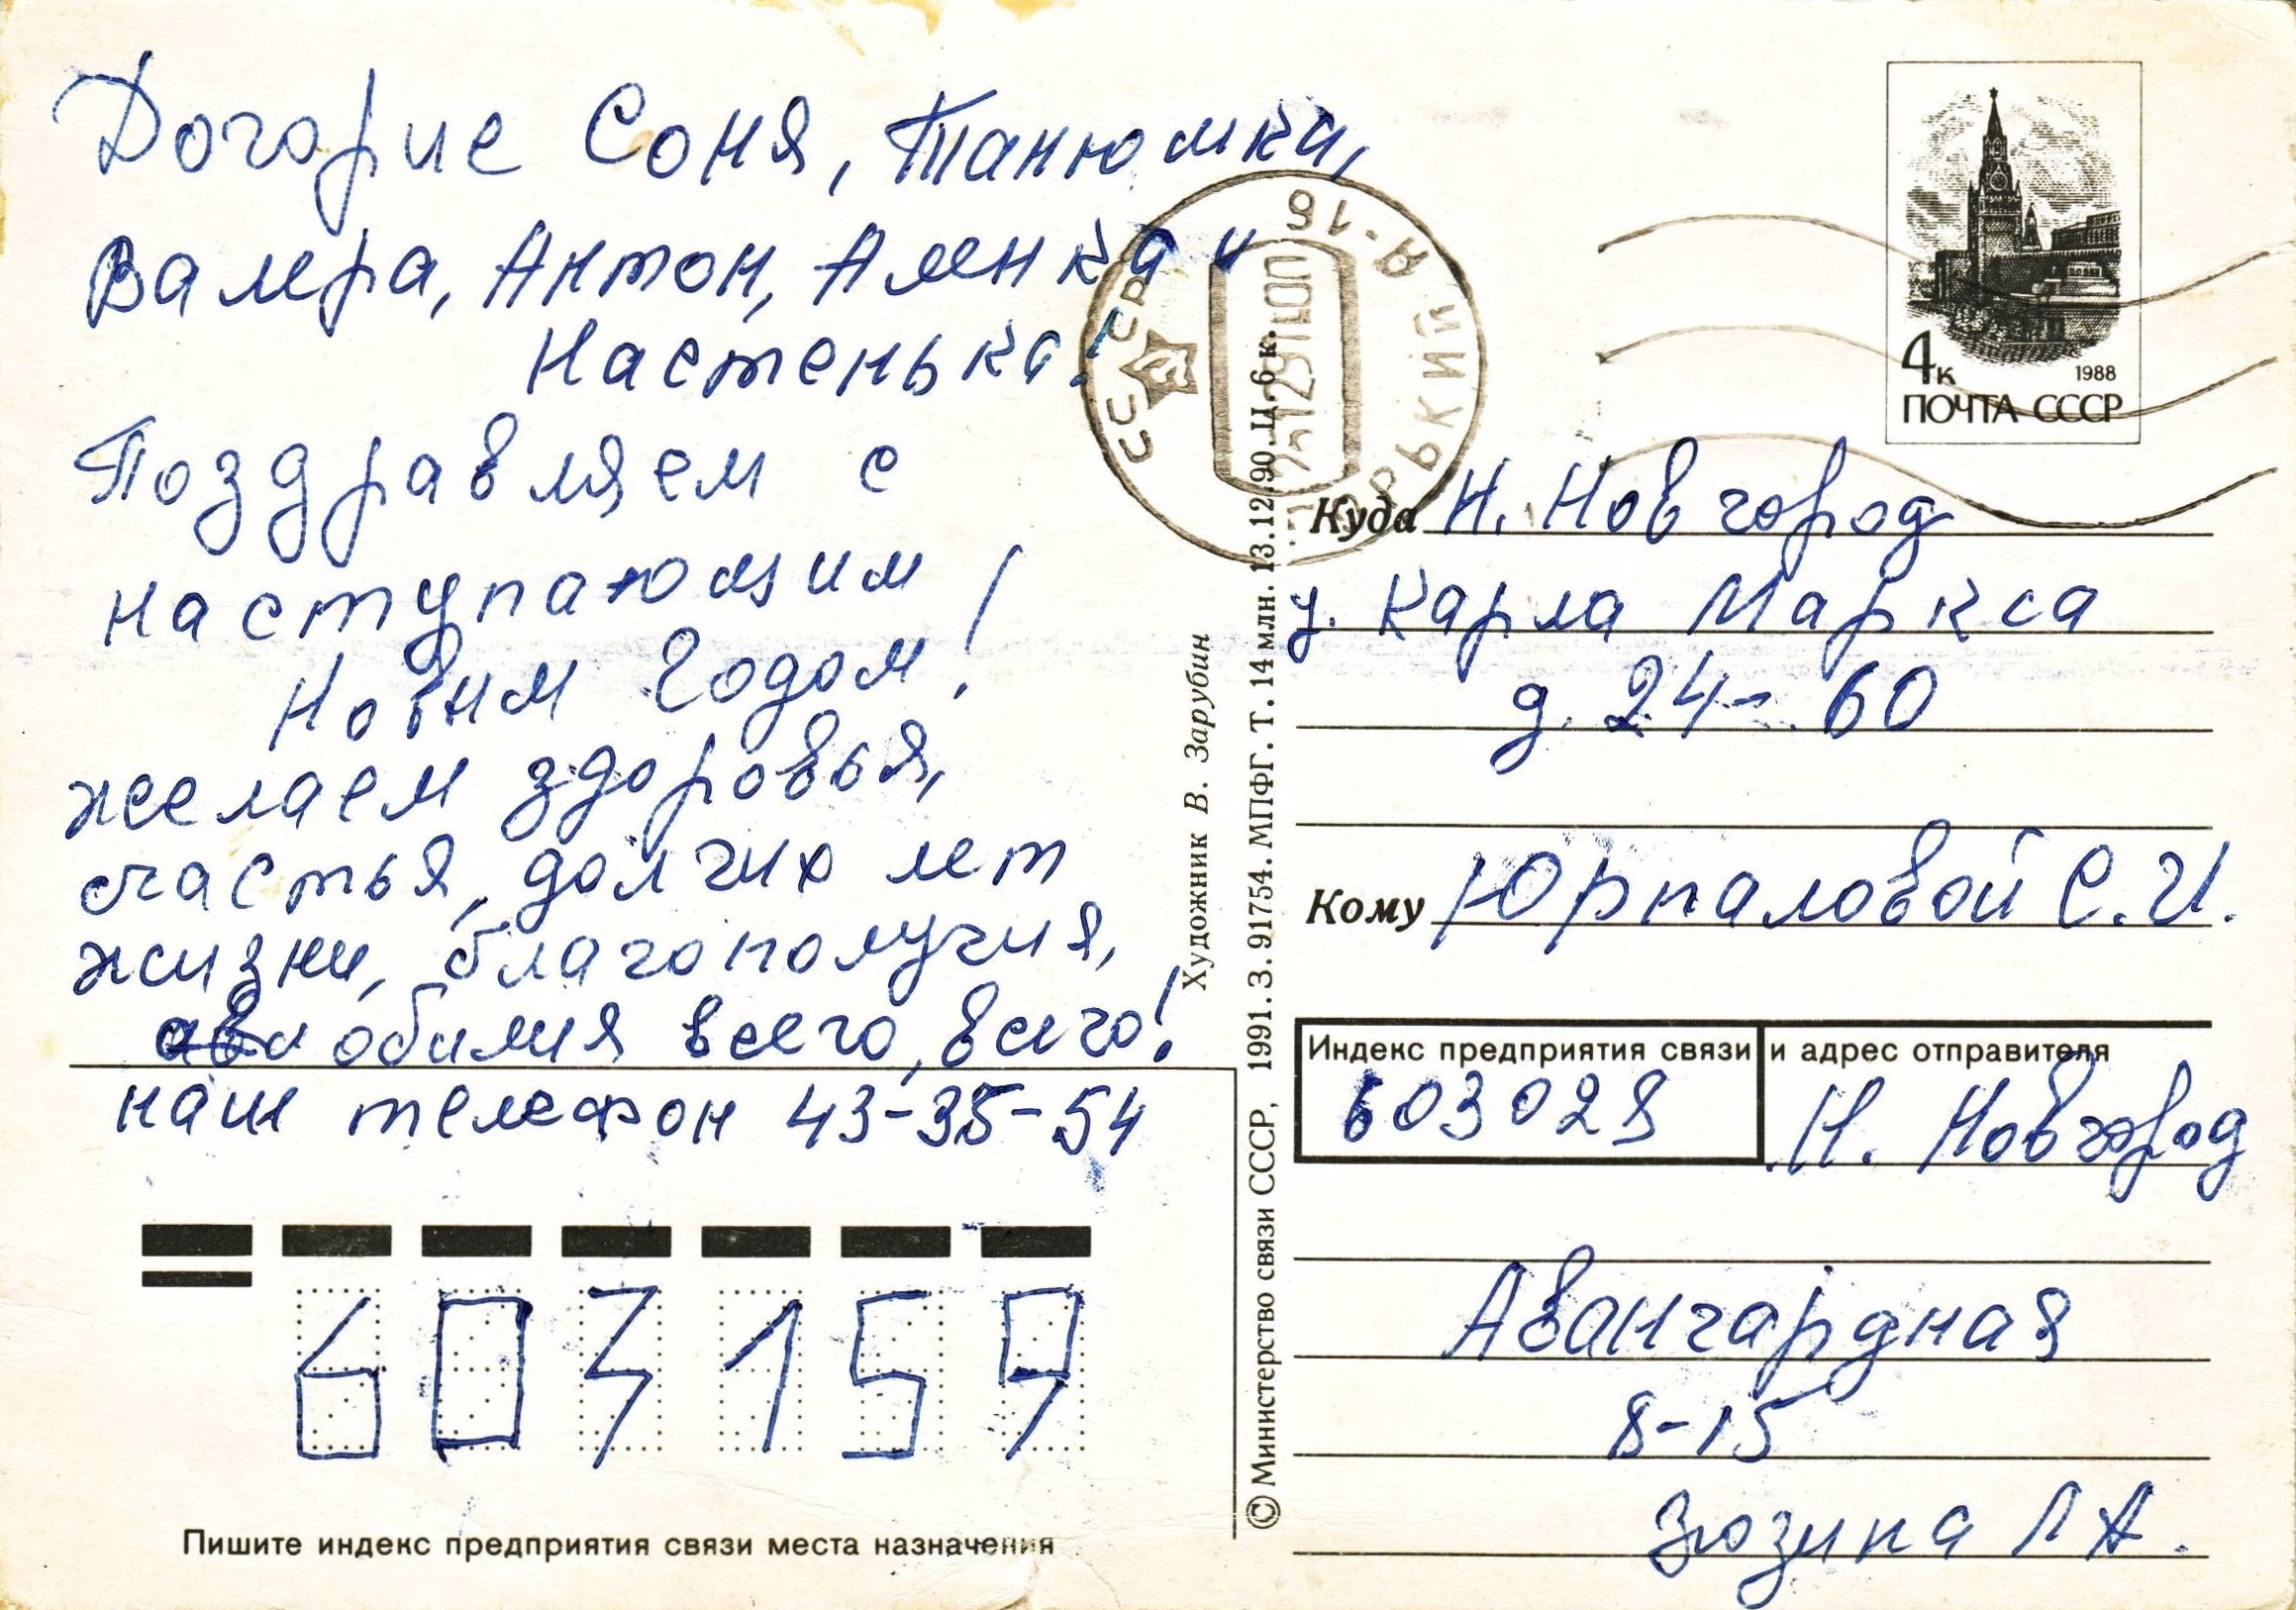 Догорие Соня, Танюшка,
Валера, Антон, Аленка и
Настенька!
Поздравляем с
наступающим
Новым Годом!
желаем здоровья,
счастья, долгих лет
жизни, благополучия,
обилия всего, всего!
наш телефон 43-35-54
603159
Пишите индекс предприятия связи места назначения
Художник В. Зарубин
© Министерство связи СССР, 1991. З. 91754. МПФГ. Т. 14 млн. 13.12.90. Ц. 6 к.
СССР
4к 1988
ПОЧТА СССР
Куда Н. Новгород
у. Карла Маркса
д. 24-60
Кому Юрпаловой С.И.
Индекс предприятия связи и адрес отправителя
603028 Н. Новгород
Авангардная
8-15
Зюзина Л А.